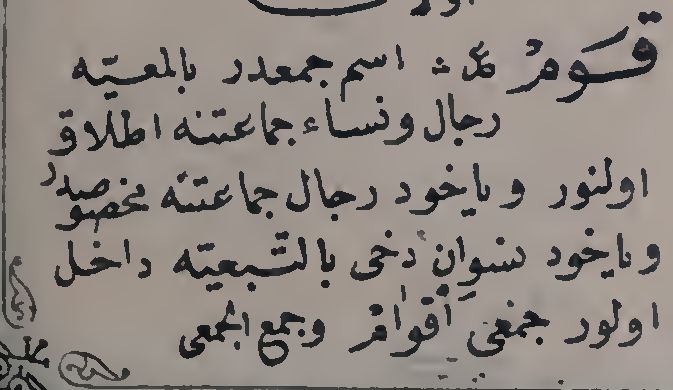 قومٌ ع: اسم جمعدر بالمعيّه
رجال ونساء جماعتنه اطلاق
اولنور ويا خود رجال جماعتنه مخصوصدر
ويا خود نسوان دخى بالتّبعيّه داخل
اولور جمعى أقوام وجمع الجمعى